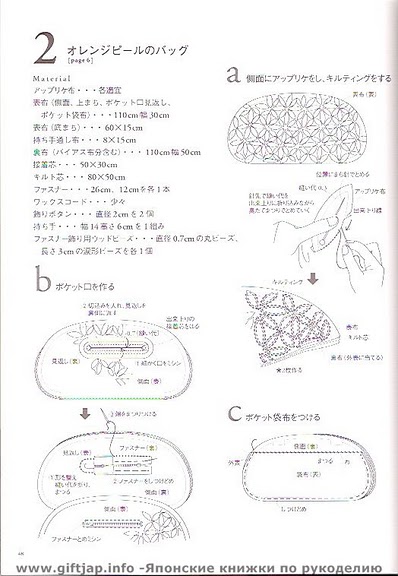 2 オレンジピールのバッグ
[page 6]
Material
アップリケ布・・・各適宜
表布(側面、上まち、ポケット口見返し、
ポケット袋布)・・・110cm幅30cm
表布(底まち)・・・60×15cm
持ち手通し布・・・8×15cm
裏布(バイアス布分含む)・・・110cm幅50cm
接着芯・・・50×30cm
キルト芯・・・80×50cm
ファスナー・・・26cm、12cmを各1本
ワックスコード・・・少々
飾りボタン・・・直径2cmを2個
持ち手・・・幅14高さ6cmを1組
ファスナー飾り用ウッドビーズ・・・直径0.7cmの丸ビーズ、
長さ3cmの涙形ビーズを各1個
a 側面にアップリケをし、キルティングをする
表布(表)
アップリケ布
出来上り線
キルティング
表布
キルト芯
b ポケット口を作る
見返し(裏)
側面(表)
見返し(表)
ファスナー(裏)
側面(裏)
側面(表)
ファスナーとめミシン
c ポケット袋布をつける
側面(裏)
外表
まつる
袋布(表)
しつけどめ
48
www.giftjap.info -Японские книжки по рукоделию